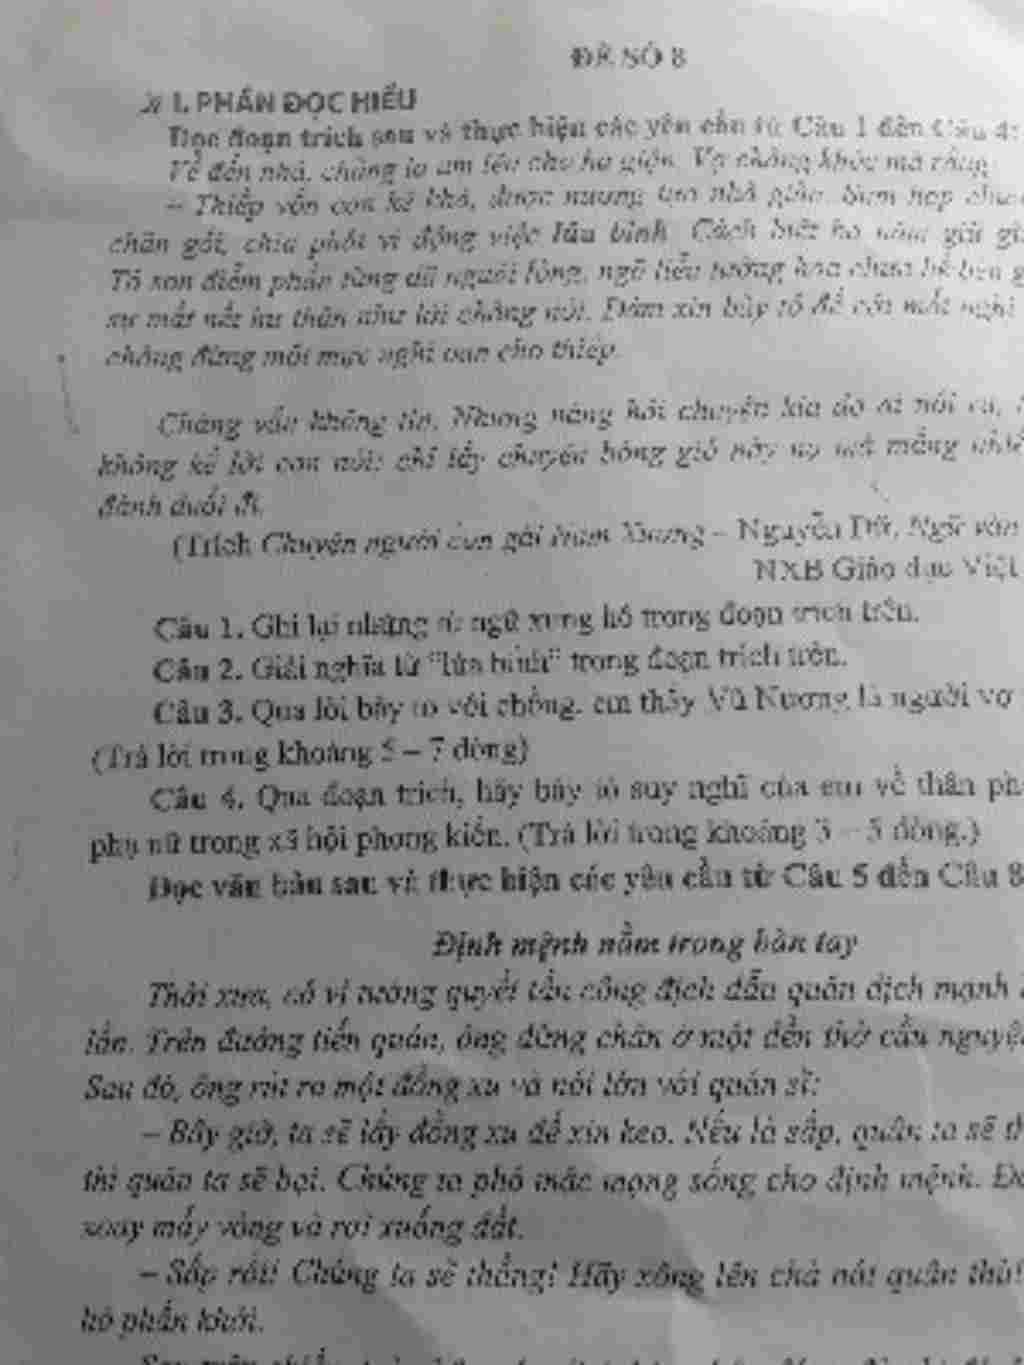 ĐỀ SỐ 8
I. PHẦN ĐỌC HIỂU
Đọc đoạn trích sau và thực hiện các yêu cầu từ Câu 1 đến Câu 4:
Về đến nhà, chàng la um lên cho hả giận. Vợ chàng khóc mà rằng:
– Thiếp vốn con kẻ khó, được nương tựa nhà giàu. Sum họp chưa
chăn gối, chia phôi vì động việc lửa binh. Cách biệt ba năm giữ gì
Tô son điểm phấn từng đã nguôi lòng, ngõ liễu tường hoa chưa hề bén g
sự mất nết hư thân như lời chàng nói. Dám xin bày tỏ để cởi mối nghi
chàng đừng một mực nghi oan cho thiếp.
Chàng vẫn không tin. Nhưng nàng hỏi chuyện kia do ai nói ra,
không kể lời con nói; chỉ lấy chuyện bóng gió này nọ mà mắng nhiế
đánh đuổi đi.
(Trích Chuyện người con gái Nam Xương – Nguyễn Dữ, Ngữ văn
NXB Giáo dục Việt
Câu 1. Ghi lại những từ ngữ xưng hô trong đoạn trích trên.
Câu 2. Giải nghĩa từ "lửa binh" trong đoạn trích trên.
Câu 3. Qua lời bày tỏ với chồng, em thấy Vũ Nương là người vợ
(Trả lời trong khoảng 5 – 7 dòng)
Câu 4. Qua đoạn trích, hãy bày tỏ suy nghĩ của em về thân ph
phụ nữ trong xã hội phong kiến. (Trả lời trong khoảng 3 – 5 dòng.)
Đọc văn bản sau và thực hiện các yêu cầu từ Câu 5 đến Câu 8
Định mệnh nằm trong bàn tay
Thời xưa, có vị tướng quyết tấn công địch dẫu quân địch mạnh
lần. Trên đường tiến quân, ông dừng chân ở một đền thờ cầu nguyệ
Sau đó, ông rút ra một đồng xu và nói lớn với quân sĩ:
– Bây giờ, ta sẽ lấy đồng xu để xin keo. Nếu là sấp, quân ta sẽ th
thì quân ta sẽ bại. Chúng ta phó mặc mạng sống cho định mệnh. Đồ
xoay mấy vòng và rơi xuống đất.
– Sấp rồi! Chúng ta sẽ thắng! Hãy xông lên chà nát quân thù!
hô phấn khởi.